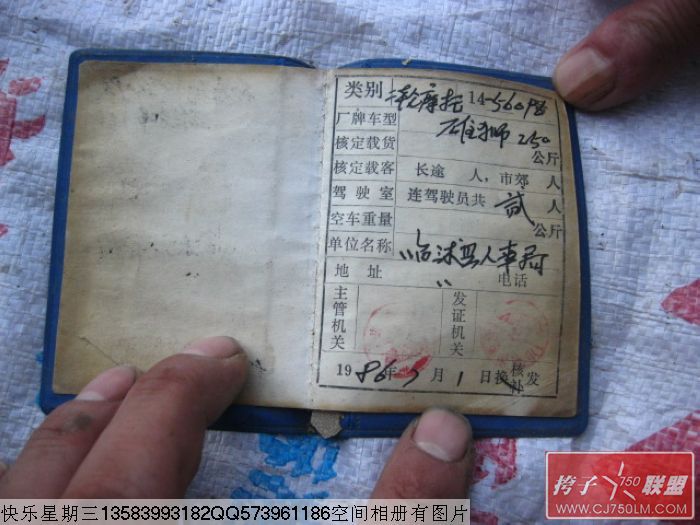 类别 二轮摩托 14-56098
厂牌车型 雄狮250
核定载货 公斤
核定载客 长途 人,市郊 人
驾驶室 连驾驶员共 贰 人
空车重量 公斤
单位名称 临沭县人事局
地址 〃 电话
主管机关 发证机关
1986年7月1日换 核 补 发
快乐星期三13583993182QQ573961186空间相册有图片
挎子 750 联盟
www.CJ750LM.com